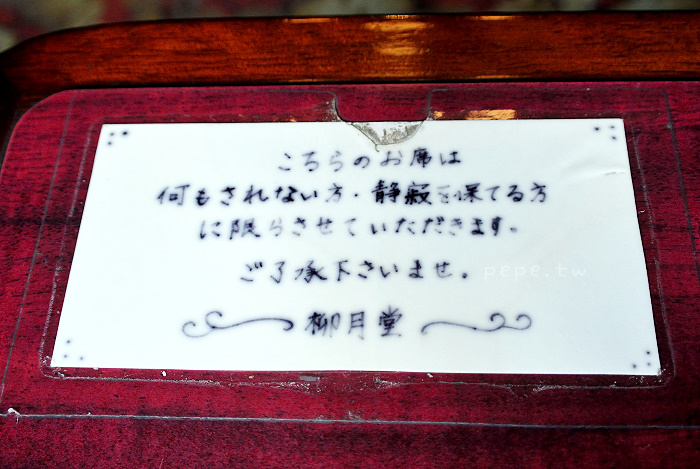 こちらのお席は
何もされない方・静寂を保てる方
に限らさせていただきます。
ご了承下さいませ。
柳月堂
pepe.tw